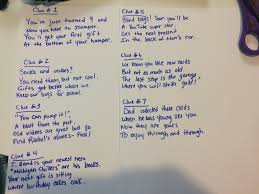 Clue #1
You've just turned 9 and
Now you have to scamper.
You'll get your first gift
At the bottom of your hamper.
Clue #2
Socks and undies?
You need them, but not cool.
Gifts get better when we
Keep our bags for school.
Clue #3
"You can pump it!"
A blast from the past,
Old videos are great but go
Find Rachel's movies - Fast!
Clue #4
J. Rand is your newest hero
"Michigan Chillers" are his books.
Your next gift is sitting
Where birthday cakes cook.
Clue #5
Good boys! Soon you'll be
A YouTube over star
Get the next present
In the back of mum's car.
Clue #6
We know you like new cards
But not as much as old
The last ship is the garage
Where you will strike "gold"!
Clue #7
Dad collected these cards
When he was young like you.
Now they are yours
To enjoy through and through.